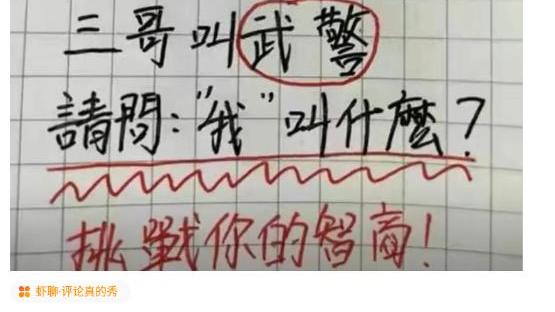 三哥叫武警
請問:"我"叫什麼?
挑戰你的智商!
虾聊·评论真的秀